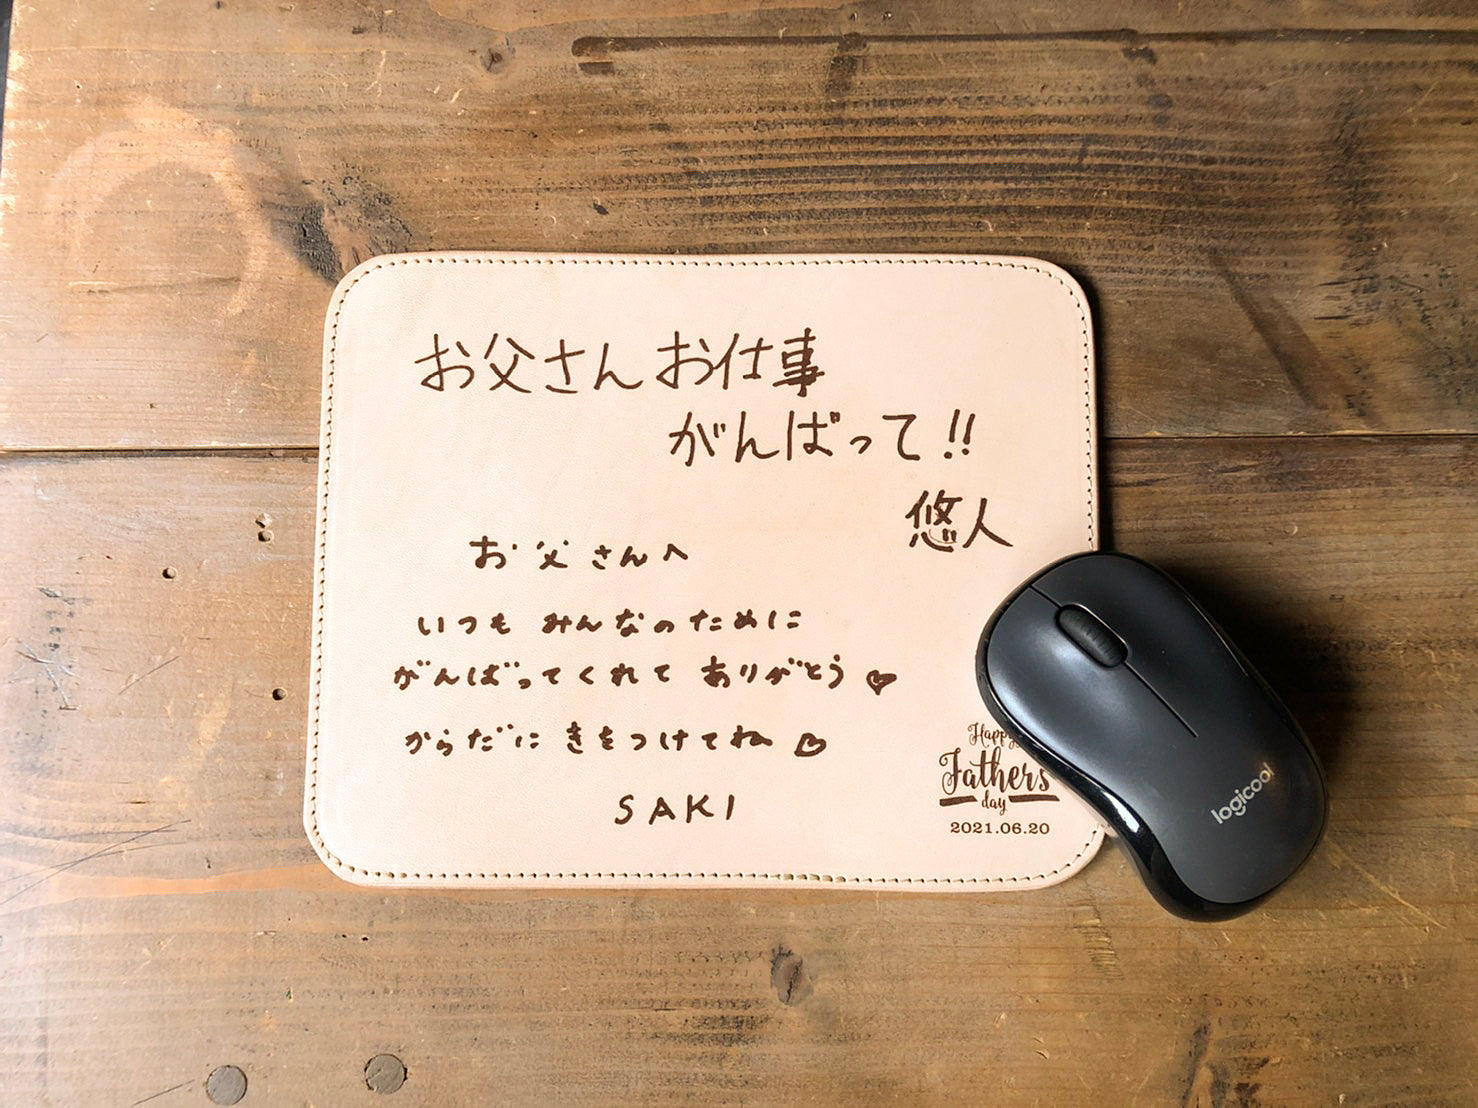 お父さんお仕事
がんばって!!
悠人
お父さんへ
いつも みんなのために
がんばってくれて ありがとう♡
からだに きをつけてね♡
SAKI
Happy
Fathers
day
2021.06.20
logicool